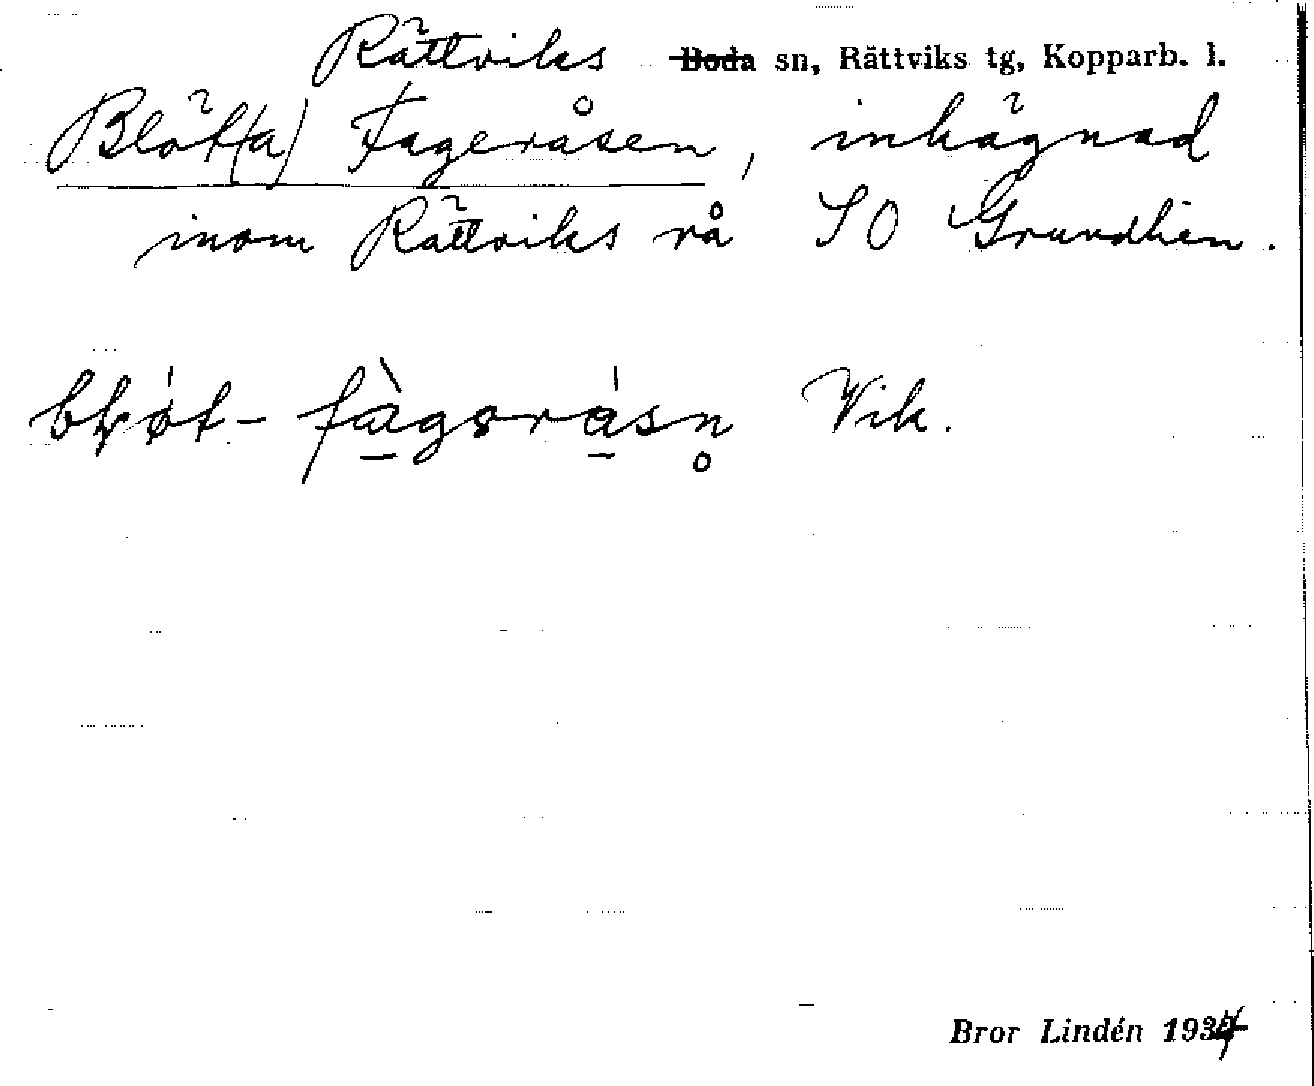 Rättviks ~~Boda~~ sn, Rättviks tg, Kopparb. l.
Blöt(a) Fageråsen, inhägnad
inom Rättviks rå SO Grundlien.
Vik.
Bror Lindén 1934